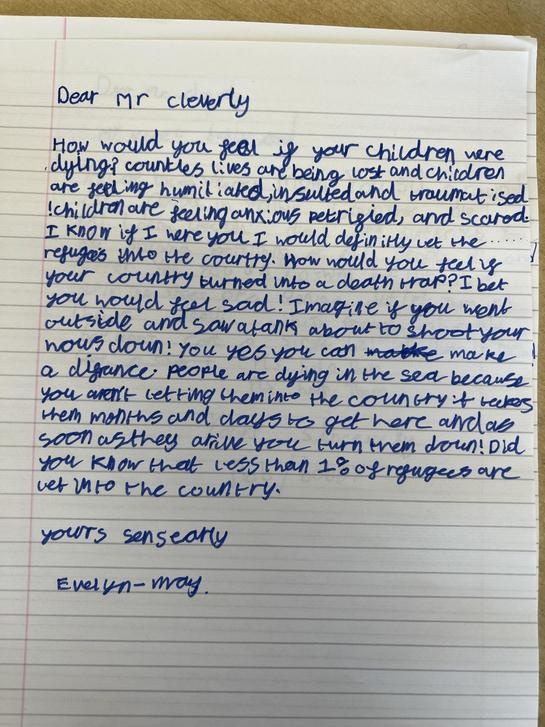 Dear Mr cleverly
How would you feel if your children were
dying? countles lives are being lost and children
are feeling humiliated, insulted and traumatised
! children are feeling anxious petrigied, and scared.
I know if I were you I would definitly let the ......
refugees into the courtry. How would you feel if
your country turned into a death trap? I bet
you would feel sad! Imagine if you went
outside and saw a tank about to shoot your
hous down! You yes you can make !
a difrance. people are dying in the sea because
you aren't letting them into the country it teckes
them months and days to get here and as
soon as they arive you turn them down! Did
you know that less than 1% of refugees are
let into the country.
yours sensearly
Evelyn-may.